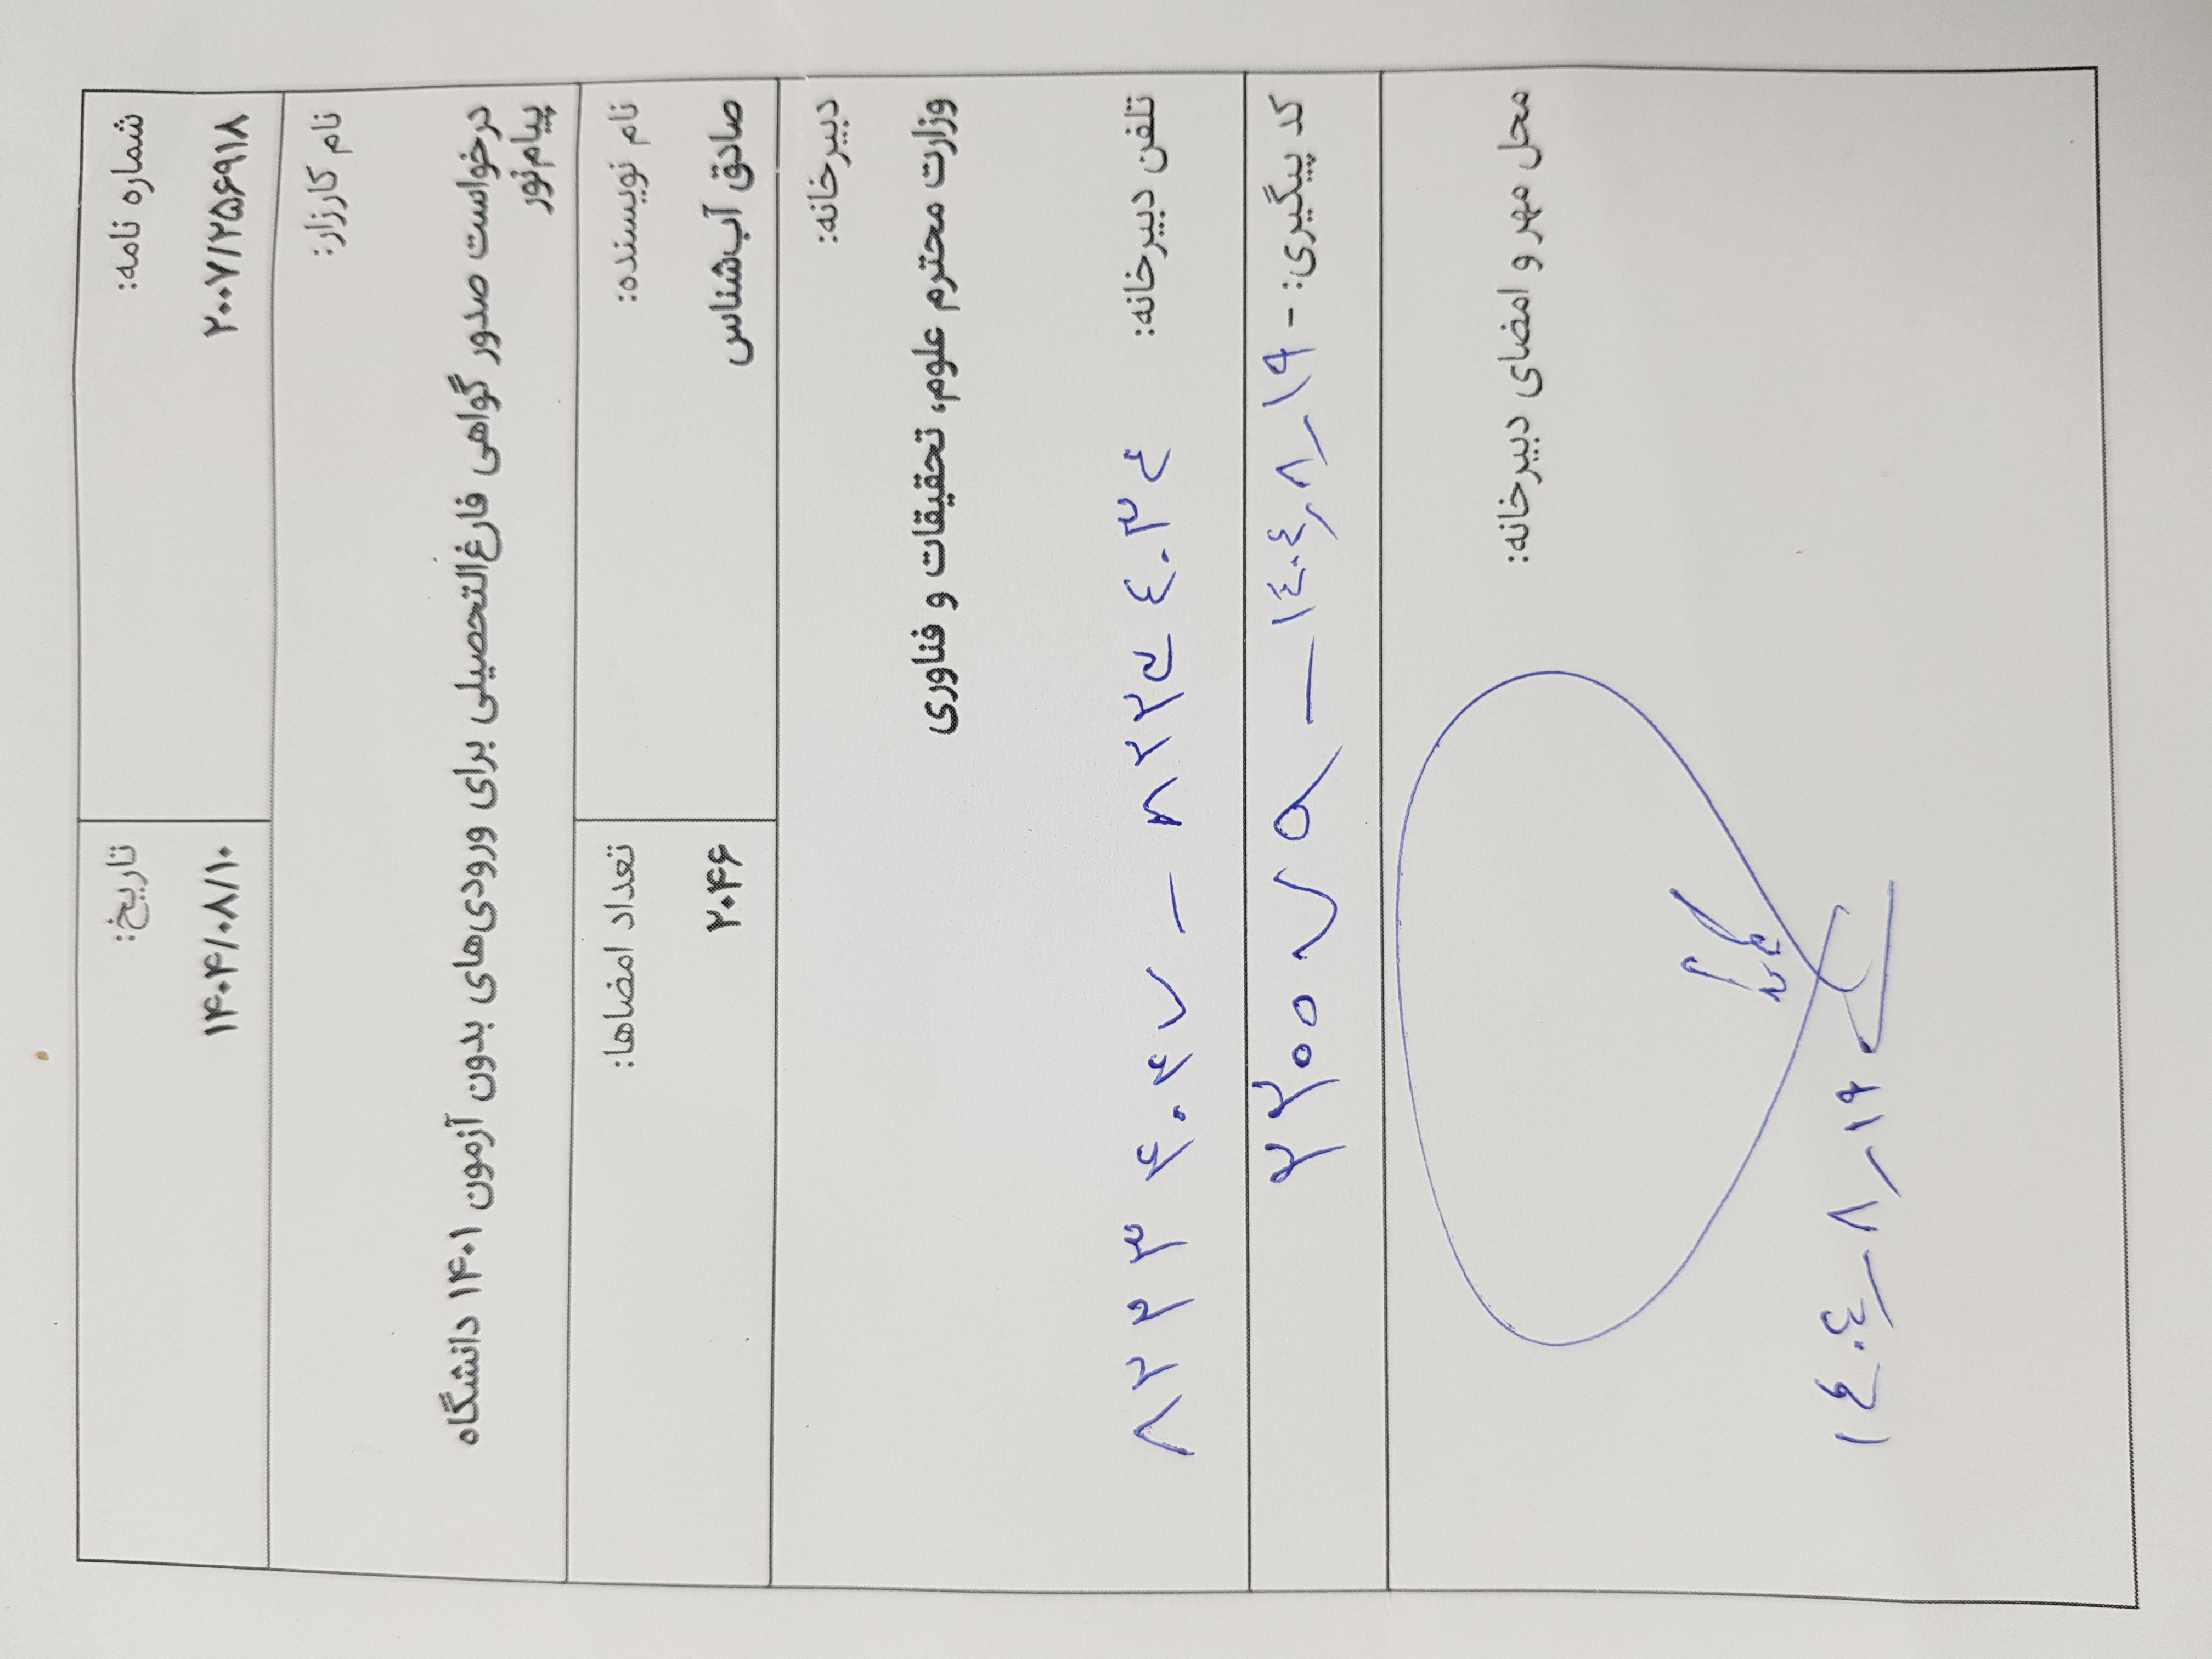 شماره نامه:
۲۰۰۷/۲۵۶۹۱۸
تاریخ:
۱۴۰۴/۰۸/۱۰
نام کارزار:
درخواست صدور گواهی فارغ‌التحصیلی برای ورودی‌های بدون آزمون ۱۴۰۱ دانشگاه
پیام‌نور
نام نویسنده:
صادق آب‌شناس
تعداد امضاها:
۲۰۴۶
دبیرخانه:
وزارت محترم علوم، تحقیقات و فناوری
تلفن دبیرخانه:
۸۲۲۳۴۰۴۷ – ۸۲۲۳۴۰۳۴
کد پیگیری: - ۱۴۰۴/۸/۱۹
محل مهر و امضای دبیرخانه:
۱۴۰۴/۸/۱۹